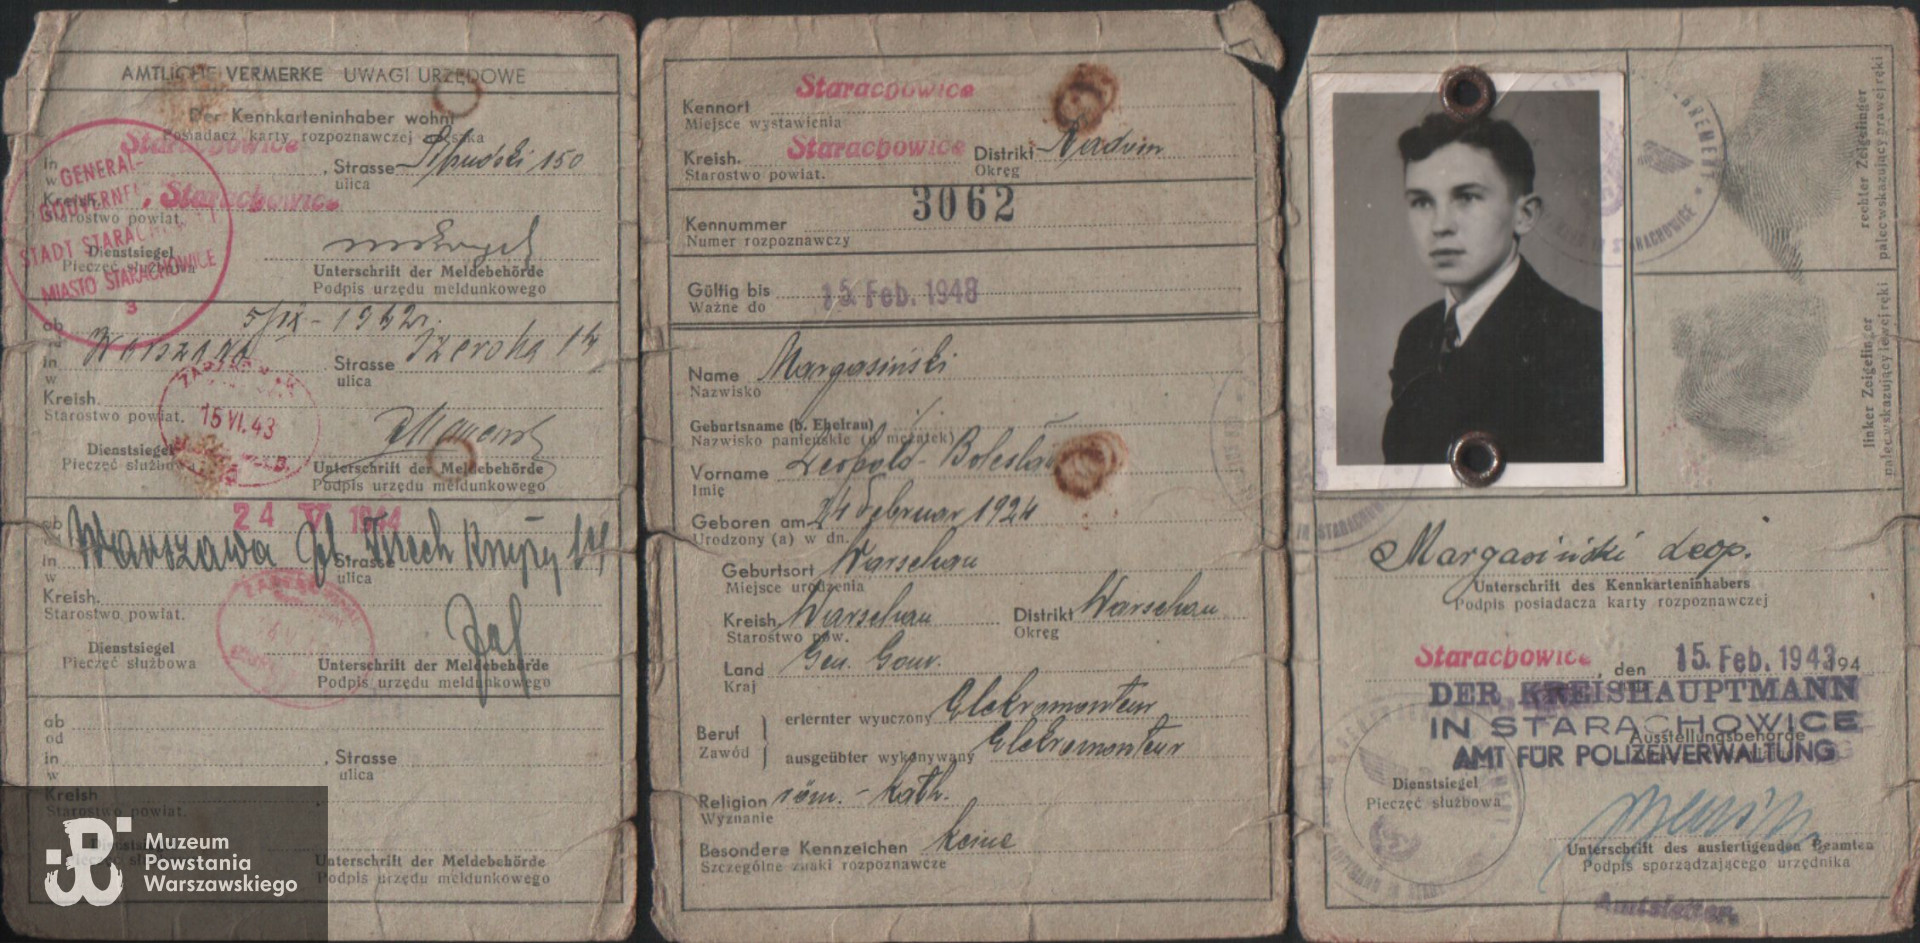 AMTLICHE VERMERKE UWAGI URZĘDOWE
Der Kennkarteninhaber wohnt
Posiadacz karty rozpoznawczej mieszka
in Starachowice, Strasse 150
w ulica
Kreish. Starachowice
Starostwo powiat.
GENERAL-
GOUVERNEMENT
STADT STARACHOWICE
MIASTO STARACHOWICE
3
Dienstsiegel
Pieczęć służbowa
Unterschrift der Meldebehörde
Podpis urzędu meldunkowego
ab
in Warszawa Strasse
w ulica
Kreish.
Starostwo powiat.
15 VI. 43
Dienstsiegel
Pieczęć służbowa
Unterschrift der Meldebehörde
Podpis urzędu meldunkowego
ab 24 V 1944
in Warszawa Pl. Trzech Krzyży Strasse
w ulica
Kreish.
Starostwo powiat.
Dienstsiegel
Pieczęć służbowa
Unterschrift der Meldebehörde
Podpis urzędu meldunkowego
ab
od
in , Strasse
w ulica
Kreish
Starostwo powiat.
Unterschrift der Meldebehörde
Podpis urzędu meldunkowego
Muzeum
Powstania
Warszawskiego
Kennort Starachowice
Miejsce wystawienia
Kreish. Starachowice Distrikt Radom
Starostwo powiat. Okręg
3062
Kennummer
Numer rozpoznawczy
Gültig bis 15. Feb. 1948
Ważne do
Name Margasiński
Nazwisko
Geburtsname (b. Ehefrau)
Nazwisko panieńskie (u mężatek)
Vorname Leopold - Bolesław
Imię
Geboren am 24 Februar 1924
Urodzony (a) w dn.
Geburtsort Warschau
Miejsce urodzenia
Kreish. Warschau Distrikt Warschau
Starostwo pow. Okręg
Land Gen. Gouv.
Kraj
Beruf erlernter wyuczony Elekromonteur
Zawód ausgeübter wykonywany Elekromonteur
Religion röm. - kath.
Wyznanie
Besondere Kennzeichen keine
Szczególne znaki rozpoznawcze
rechter Zeigefinger
palec wskazujący prawej ręki
linker Zeigefinger
palec wskazujący lewej ręki
Margasiński Leop.
Unterschrift des Kennkarteninhabers
Podpis posiadacza karty rozpoznawczej
Starachowice, den 15. Feb. 1943 194
DER KREISHAUPTMANN
IN STARACHOWICE
Ausstellungsbehörde
AMT FÜR POLIZEIVERWALTUNG
Dienstsiegel
Pieczęć służbowa
Unterschrift des ausfertigenden Beamten
Podpis sporządzającego urzędnika
Amtsleiter.